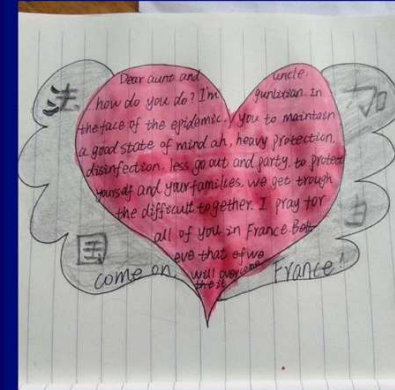 法国
加油
Dear aunt and uncle,
how do you do? I'm gunlixian. In
the face of the epidemic, you to maintain
a good state of mind ah, heavy protection,
disinfection, less go out and party, to protect
yourself and your families. We get trough
the difficult together. I pray for
all of you in France. Beli
eve that of we
will overcome
the it
come on France!